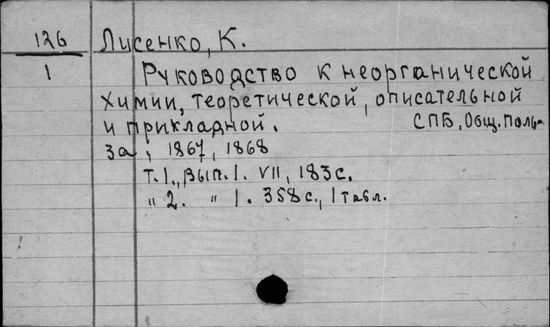 126 Лисенко, К.
1 Руководство к неорганической
химии, теоретической, описательной
и прикладной. СПБ, Общ. Польза
за, 1867, 1868
т. 1., вып. 1. VII, 183с.
" 2. " 1. 358с., 1 табл.